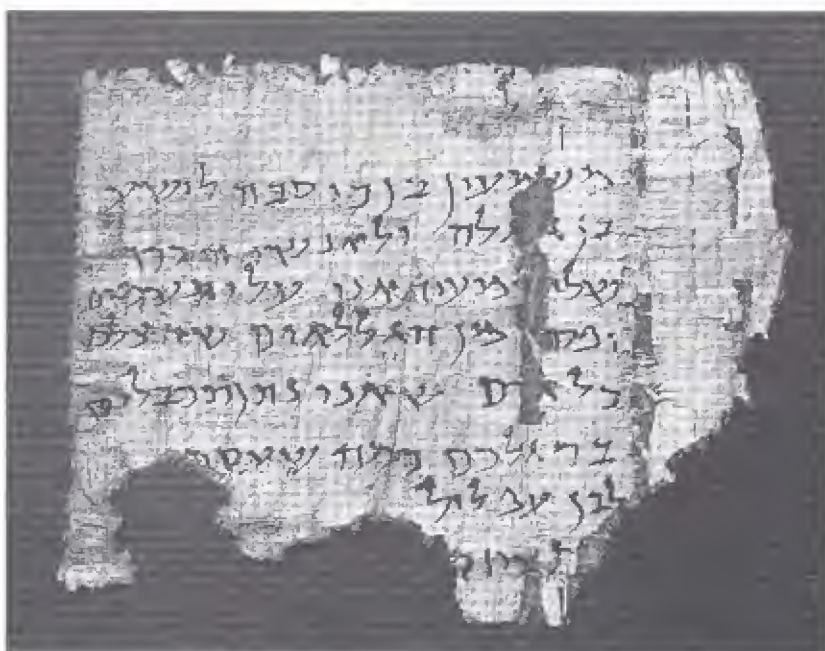 משמעון בן כוסבה לישוע
בן גלגלה ולאנשי הכרך
שלום מעיד אני עלי תשמים
יפס מן הגללאים שהצלם
כל אדם שאני נתן תכבלים
ברגלכם כמה שעסת
לבן עפלול